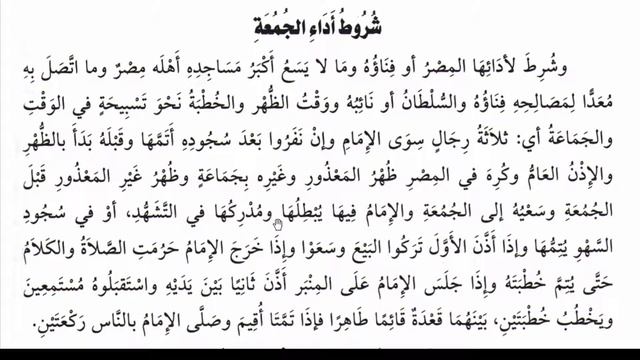 شُرُوطُ أَدَاءِ الجُمُعَةِ
وشُرِطَ لأدَائِهَا المِصْرُ أو فِنَاؤُهُ ومَا لا يَسَعُ أَكْبَرُ مَسَاجِدِهِ أَهْلَه مِصْرٌ وما اتَّصَلَ بِهِ
مُعَدًّا لِمَصَالِحِهِ فِنَاؤُهُ والسُّلْطَانُ أو نَائِبُهُ ووَقْتُ الظُّهْرِ والخُطْبَةُ نَحْوَ تَسْبِيحَةٍ في الوَقْتِ
والجَمَاعَةُ أي: ثَلاَثَةُ رِجَالٍ سِوَى الإمَامِ وإنْ نَفَرُوا بَعْدَ سُجُودِهِ أَتَمَّهَا وقَبْلَهُ بَدَأَ بالظُّهْرِ
والإذْنُ العَامُّ وكُرِهَ في المِصْرِ ظُهْرُ المَعْذُورِ وغَيْرِه بِجَمَاعَةٍ وظُهْرُ غَيْرِ المَعْذُورِ قَبْلَ
الجُمُعَةِ وسَعْيُهُ إلى الجُمُعَةِ والإمَامُ فِيهَا يُبْطِلُهَا ومُدْرِكُهَا في التَّشَهُّدِ، أوْ في سُجُودِ
السَّهْوِ يُتِمُّهَا وإذَا أَذَّنَ الأَوَّلَ تَرَكُوا البَيْعَ وسَعَوْا وإذَا خَرَجَ الإمَامُ حَرُمَتِ الصَّلاَةُ والكَلاَمُ
حَتَّى يُتِمَّ خُطْبَتَهُ وإذَا جَلَسَ الإمَامُ عَلَى المِنْبَرِ أَذَّنَ ثَانِيًا بَيْنَ يَدَيْهِ واسْتَقْبَلُوهُ مُسْتَمِعِينَ
ويَخْطُبُ خُطْبَتَيْنِ، بَيْنَهُمَا قَعْدَةٌ قَائِمًا طَاهِرًا فإذَا تَمَّتَا أُقِيمَ وصَلَّى الإمَامُ بالنَّاسِ رَكْعَتَيْنِ.